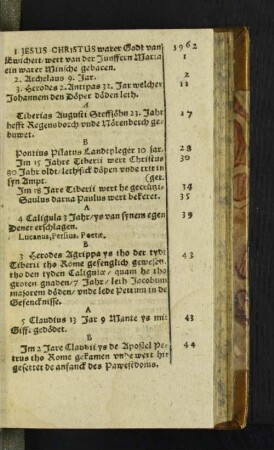 1 JESUS CHRISTUS warer Godt van 3962
Ewicheit wert van der Junffern Maria 1
ein warer Minsche gebaren.
2. Archelaus 9. Jar. 2
3. Herodes 2. Antipas 32. Jar welcher 11
Johannem den Döper döden leth.
A
Tiberias August Steffsöhn 23. Jahr 17
hefft Regensborch vnde Nörenberch ge-
buwet.
B
Pontius Pilatus Landtpleger 10 jar. 28
Im 15 Jahre Tiberii wert Christus 30
30 Jahr oldt/ lethsick döpen vnde tritt in
syn Ampt. (get.
Im 18 Jare Tiberii wert he gecrützi- 34
Saulus darna Paulus wert bekeret. 35
A
4 Caligula 3 Jahr/ ys van synem egen 39
Dener erschlagen.
Lucanus, Persius. Poetæ.
B
3 Herodes Agrippa ys tho der tydt 43
Tiberii tho Rome gefenglich gewesen/
tho den tyden Caligulæ/ quam he tho
groten gnaden/ 7 Jahr/ leth Jacobum
majorem döden/ vnde lede Petrum in de
Gefencknisse.
A
5 Claudius 13 Jar 9 Mante ys mit 43
Gifft gedödet.
B
Im 2 Jare Claudii ys de Apostel Pe- 44
trus tho Rome gekamen vnde wert hir
gesettet de anfanck des Pawestdoms.